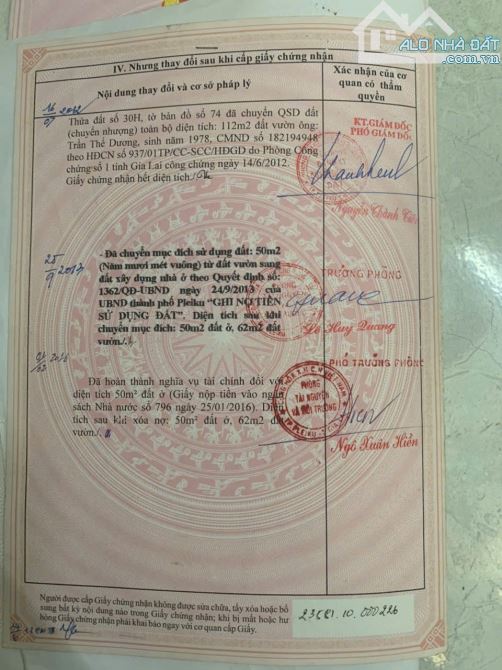 ALO NHÀ ĐẤT
.com.vn
IV. Nhưng thay đổi sau khi cấp giấy chứng nhận
Nội dung thay đổi và cơ sở pháp lý
Xác nhận của cơ
quan có thẩm
quyền
16/07/2012
Thửa đất số 30H, tờ bản đồ số 74 đã chuyển QSD đất
(chuyển nhượng) toàn bộ diện tích: 112m2 đất vườn ông:
Trần Thế Dương, sinh năm 1978, CMND số 182194948
theo HĐCN số 937/01TP/CC-SCC/HĐGD do Phòng Công
chứng số 1 tỉnh Gia Lai công chứng ngày 14/6/2012.
Giấy chứng nhận hết diện tích./.
KT.GIÁM ĐỐC
PHÓ GIÁM ĐỐC
Nguyễn Thành
25/9/2013
- Đã chuyển mục đích sử dụng đất: 50m2
(Năm mươi mét vuông) từ đất vườn sang
đất xây dựng nhà ở theo Quyết định số
1362/QĐ-UBND ngày 24/9/2013 của
UBND thành phố Pleiku "GHI NỢ TIỀN
SỬ DỤNG ĐẤT". Diện tích sau khi
chuyển mục đích: 50m2 đất ở, 62m2 đất
vườn./.
TRƯỞNG PHÒNG
Lê Huy Quang
02/2016
Đã hoàn thành nghĩa vụ tài chính đối với
diện tích 50m² đất ở (Giấy nộp tiền vào ngân
sách Nhà nước số 796 ngày 25/01/2016). Diện
tích sau khi xóa nợ: 50m² đất ở, 62m2 đất
vườn./.
PHÓ TRƯỞNG PHÒNG
PHÒNG
TÀI NGUYÊN
VÀ MÔI TRƯỜNG
TP PLEIKU
Ngô Xuân Hiền
Người được cấp Giấy chứng nhận không được sửa chữa, tẩy xóa hoặc bổ
sung bất kỳ nội dung nào trong Giấy chứng nhận; khi bị mất hoặc hư
hỏng Giấy chứng nhận phải khai báo ngay với cơ quan cấp Giấy.
23CC1.10.000226